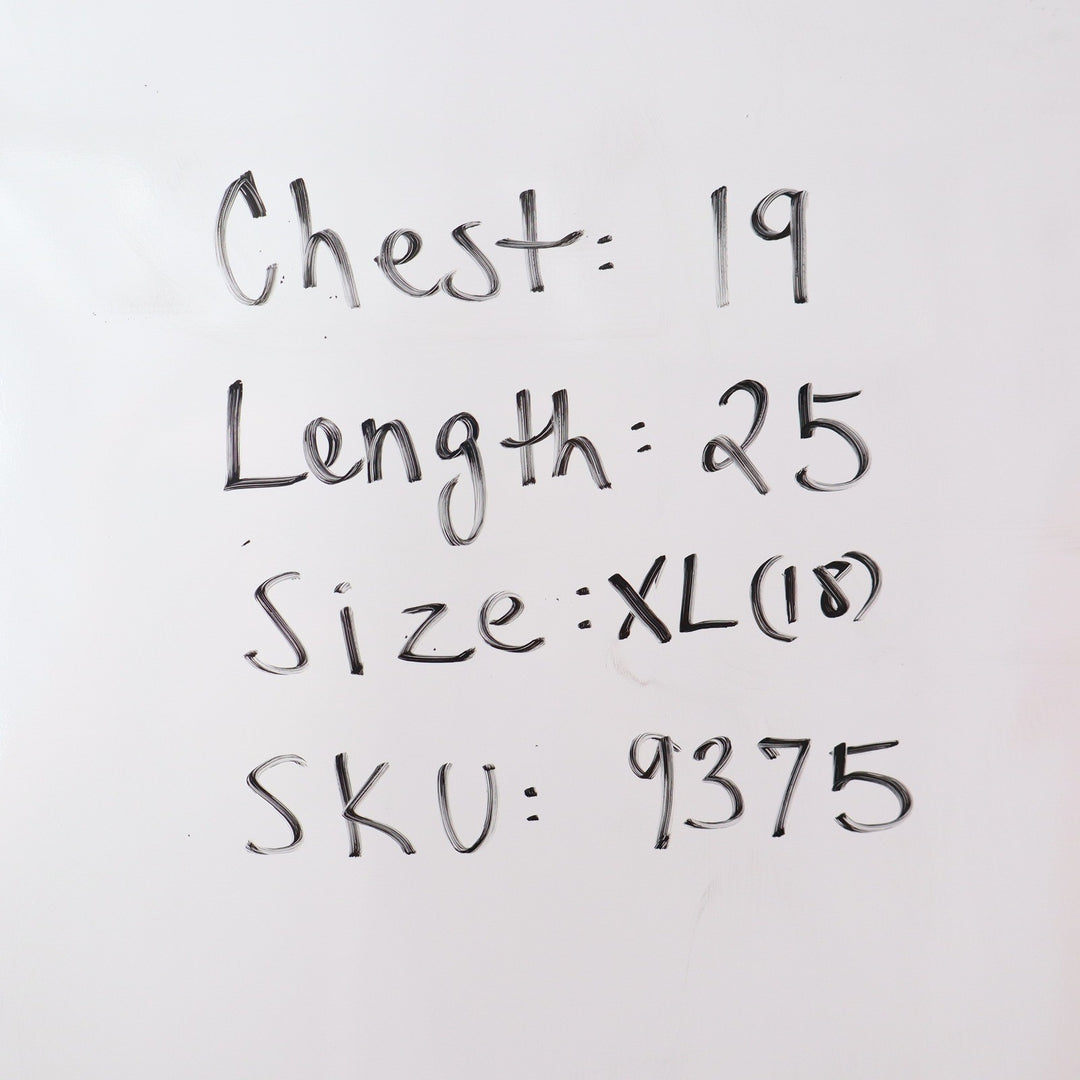 Chest: 19
Length: 25
Size: XL (18)
SKU: 9375